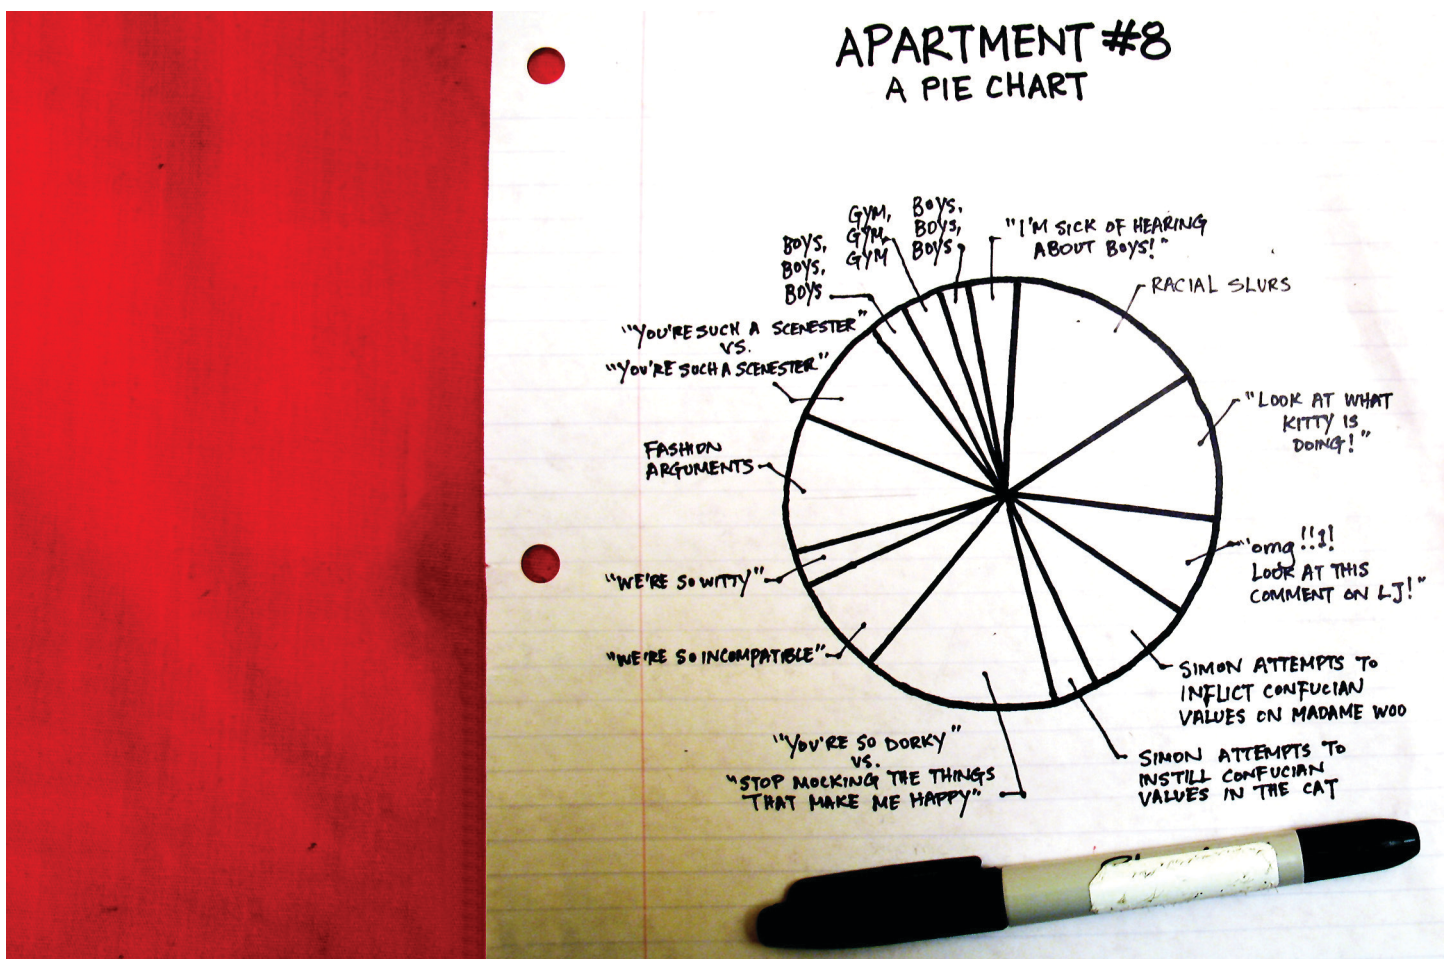 APARTMENT #8
A PIE CHART
BOYS,
BOYS,
BOYS
GYM,
GYM,
GYM
BOYS,
BOYS,
BOYS
"I'M SICK OF HEARING
ABOUT BOYS!"
RACIAL SLURS
"LOOK AT WHAT
KITTY IS
DOING!"
"omg!!1!
LOOK AT THIS
COMMENT ON LJ!"
SIMON ATTEMPTS TO
INFLICT CONFUCIAN
VALUES ON MADAME WOO
SIMON ATTEMPTS TO
INSTILL CONFUCIAN
VALUES IN THE CAT
"YOU'RE SO DORKY"
VS.
"STOP MOCKING THE THINGS
THAT MAKE ME HAPPY"
"WE'RE SO INCOMPATIBLE"
"WE'RE SO WITTY"
FASHION
ARGUMENTS
"YOU'RE SUCH A SCENESTER"
VS.
"YOU'RE SUCH A SCENESTER"